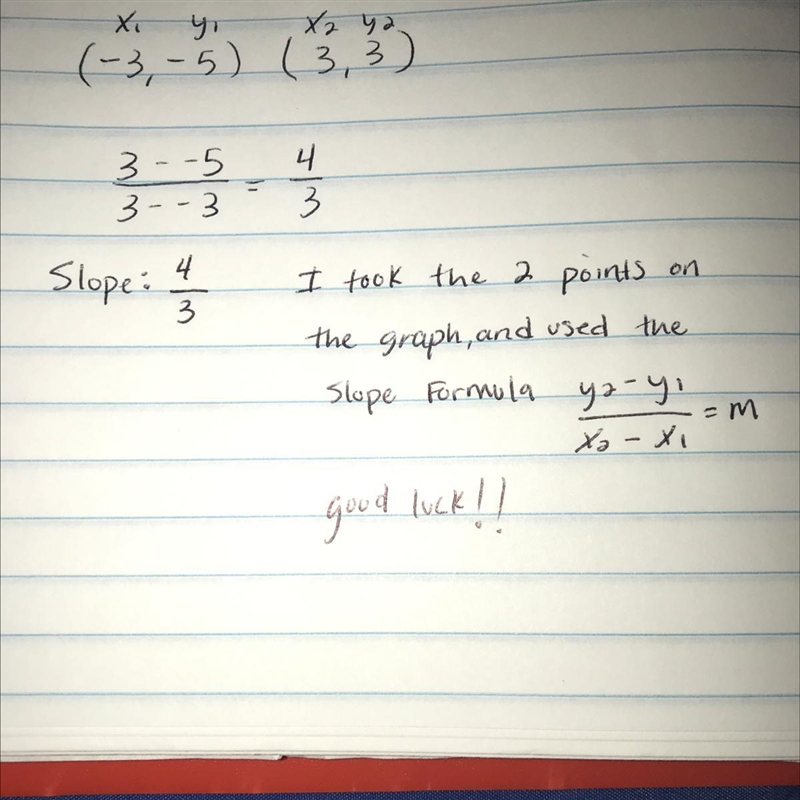 x₁ y₁ x₂ y₂
(-3, -5) (3, 3)
3 - -5 / 3 - -3 = 4 / 3
Slope: 4 / 3
I took the 2 points on
the graph, and used the
slope Formula y₂ - y₁ / x₂ - x₁ = m
good luck!!